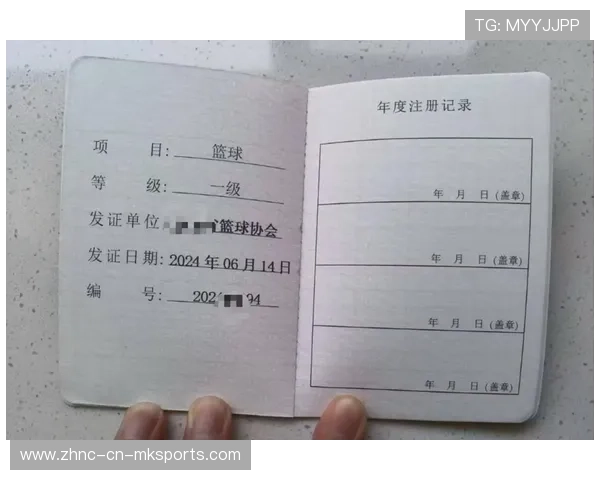 TG: MYYJJPP
项 目: 篮球
等 级: 一级
发证单位 篮球协会
发证日期: 2024 年 06 月 14 日
编 号: 202 94
年度注册记录
年 月 日(盖章)
年 月 日(盖章)
年 月 日(盖章)
年 月 日(盖章)
www.zhnc-cn-mksports.com/